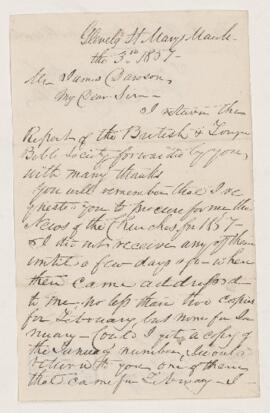 Glenelg St Marys March
the 3rd 1857-
Mr James Dawson,
My Dear Sir-
I return the
Report of the British & Foreign
Bible Society forwarded by you,
with many thanks
You will remember that I re
quested you to procure for me the
News of the Churches for 1857-
& I did not receive any of them
until a few days ago- when
there came addressed
to me no less than two copies
for February, but none for Ja
nuary- Could I get a copy of
the January number, I would
return with you one of them
that came for February- I